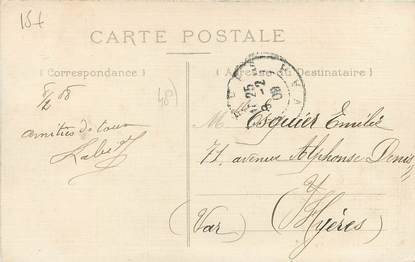 15+
CARTE POSTALE
( Correspondance )
( Adresse du Destinataire )
8/2 08
(48)
25
-2
08
amitiés de tous
M Esquier Emilie
71, avenue Alphonse Denis
Hyères
(Var)